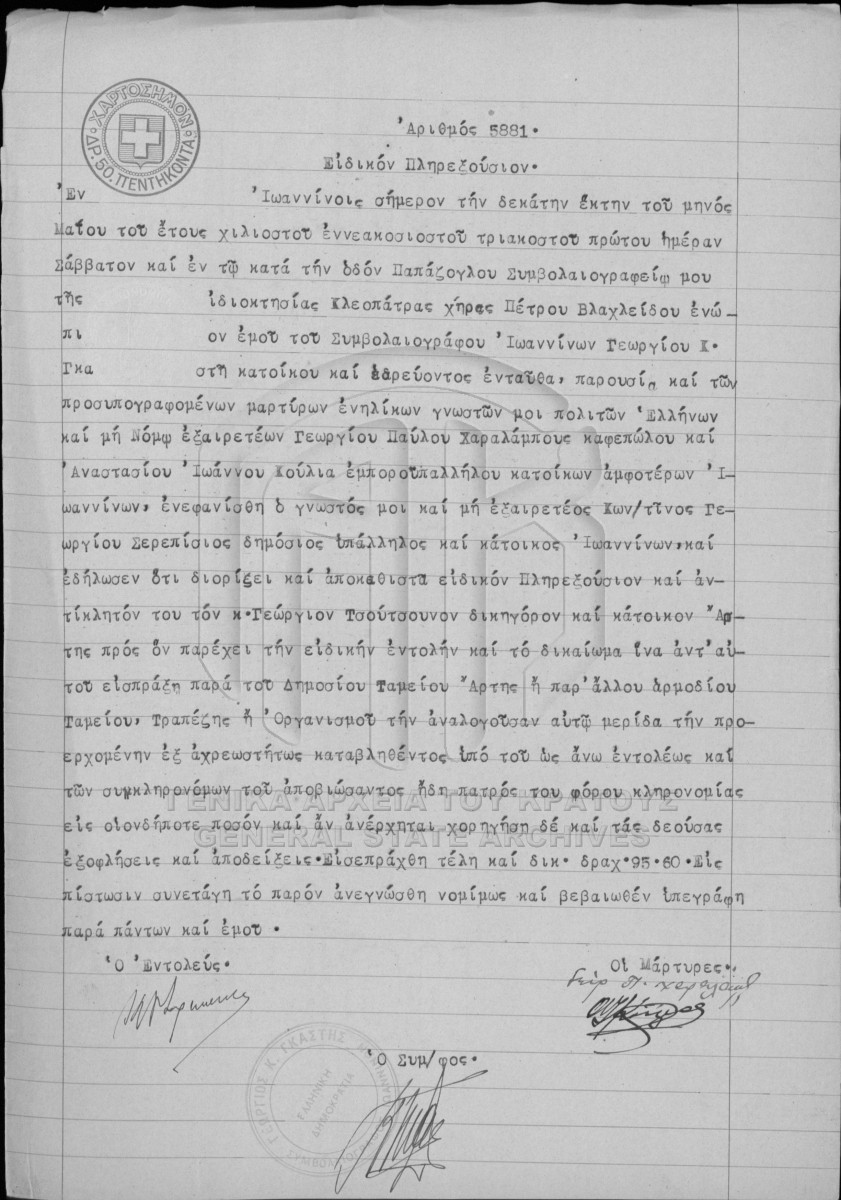 ΧΑΡΤΟΣΗΜΟΝ
ΔΡ. 50. ΠΕΝΤΗΚΟΝΤΑ
Ἀριθμός 5881.
Εἰδικόν Πληρεξούσιον.
Ἐν Ἰωαννίνοις σήμερον τήν δεκάτην ἕκτην τοῦ μηνός
Μαΐου τοῦ ἔτους χιλιοστοῦ ἐννεακοσιοστοῦ τριακοστοῦ πρώτου ἡμέραν
Σάββατον καί ἐν τῷ κατά τήν ὁδόν Παπάζογλου Συμβολαιογραφείῳ μου
τῆς ἰδιοκτησίας Κλεοπάτρας χήρας Πέτρου Βλαχλείδου ἐνώ-
πι ον ἐμοῦ τοῦ Συμβολαιογράφου Ἰωαννίνων Γεωργίου Κ.
Γκα στῆ κατοίκου καί ἑδρεύοντος ἐνταῦθα, παρουσίᾳ καί τῶν
προσυπογραφομένων μαρτύρων ἐνηλίκων γνωστῶν μοι πολιτῶν Ἑλλήνων
καί μή Νόμῳ ἐξαιρετέων Γεωργίου Παύλου Χαραλάμπους καφεπώλου καί
Ἀναστασίου Ἰωάννου Κούλια ἐμποροϋπαλλήλου κατοίκων ἀμφοτέρων Ἰ-
ωαννίνων, ἐνεφανίσθη ὁ γνωστός μοι καί μή ἐξαιρετέος Κων/τῖνος Γε-
ωργίου Σερεπίσιος δημόσιος ὑπάλληλος καί κάτοικος Ἰωαννίνων, καί
ἐδήλωσεν ὅτι διορίζει καί ἀποκαθιστᾶ εἰδικόν Πληρεξούσιον καί ἀν-
τίκλητόν του τόν κ. Γεώργιον Τσούτσουνον δικηγόρον καί κάτοικον Ἄρ-
της πρός ὅν παρέχει τήν εἰδικήν ἐντολήν καί τό δικαίωμα ἵνα ἀντ' αὐ-
τοῦ εἰσπράξῃ παρά τοῦ Δημοσίου Ταμείου Ἄρτης ἤ παρ' ἄλλου ἁρμοδίου
Ταμείου, Τραπέζης ἤ Ὀργανισμοῦ τήν ἀναλογοῦσαν αὐτῷ μερίδα τήν προ-
ερχομένην ἐξ ἀχρεωστήτως καταβληθέντος ὑπό τοῦ ὡς ἄνω ἐντολέως καί
τῶν συγκληρονόμων τοῦ ἀποβιώσαντος ἤδη πατρός του φόρου κληρονομίας
εἰς οἱονδήποτε ποσόν καί ἄν ἀνέρχηται χορηγήσῃ δέ καί τάς δεούσας
ἐξοφλήσεις καί ἀποδείξεις. Εἰσεπράχθη τέλη καί δικ. δραχ. 95.60. Εἰς
πίστωσιν συνετάγη τό παρόν ἀνεγνώσθη νομίμως καί βεβαιωθέν ὑπεγράφη
παρά πάντων καί ἐμοῦ.
Ὁ Ἐντολεύς.
Οἱ Μάρτυρες.
Ὁ Συμ/φος.
ΓΕΩΡΓΙΟΣ Κ. ΓΚΑΣΤΗΣ
ΕΛΛΗΝΙΚΗ
ΔΗΜΟΚΡΑΤΙΑ
ΓΕΝΙΚΑ ΑΡΧΕΙΑ ΤΟΥ ΚΡΑΤΟΥΣ
GENERAL STATE ARCHIVES